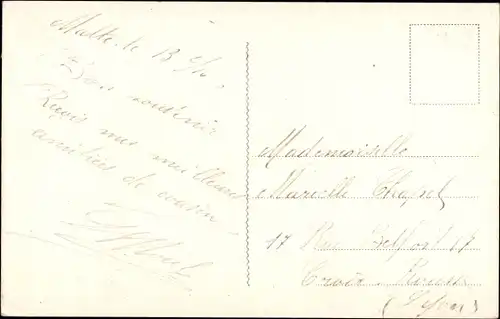 Malte. le 13
Bon souvenir
Reçois mes meilleures
amitiés de cousin
Mademoiselle
Marcelle Chapel
17 Rue Belfort 17
Croix-Rousse
(Lyon)